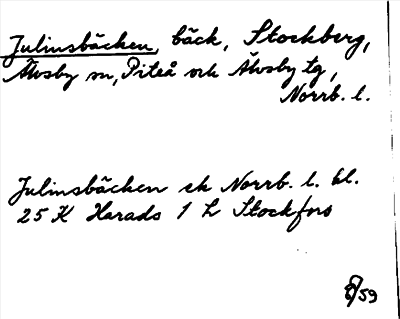 Julinsbäcken, bäck, Stockberg,
Älvsby sn, Piteå och Älvsby tg,
Norrb. l.
Julinsbäcken ek Norrb. l. bl.
25 K Harads 1 L Stockfors
/59